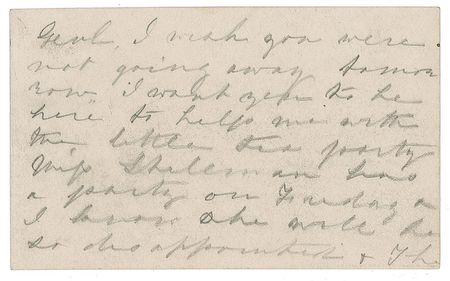 I wish you were
not going away tomor
row, I want you to be
here to help me with
the little tea party
Miss Stillman has
a party on Friday a
I know she will be
so disappointed & The